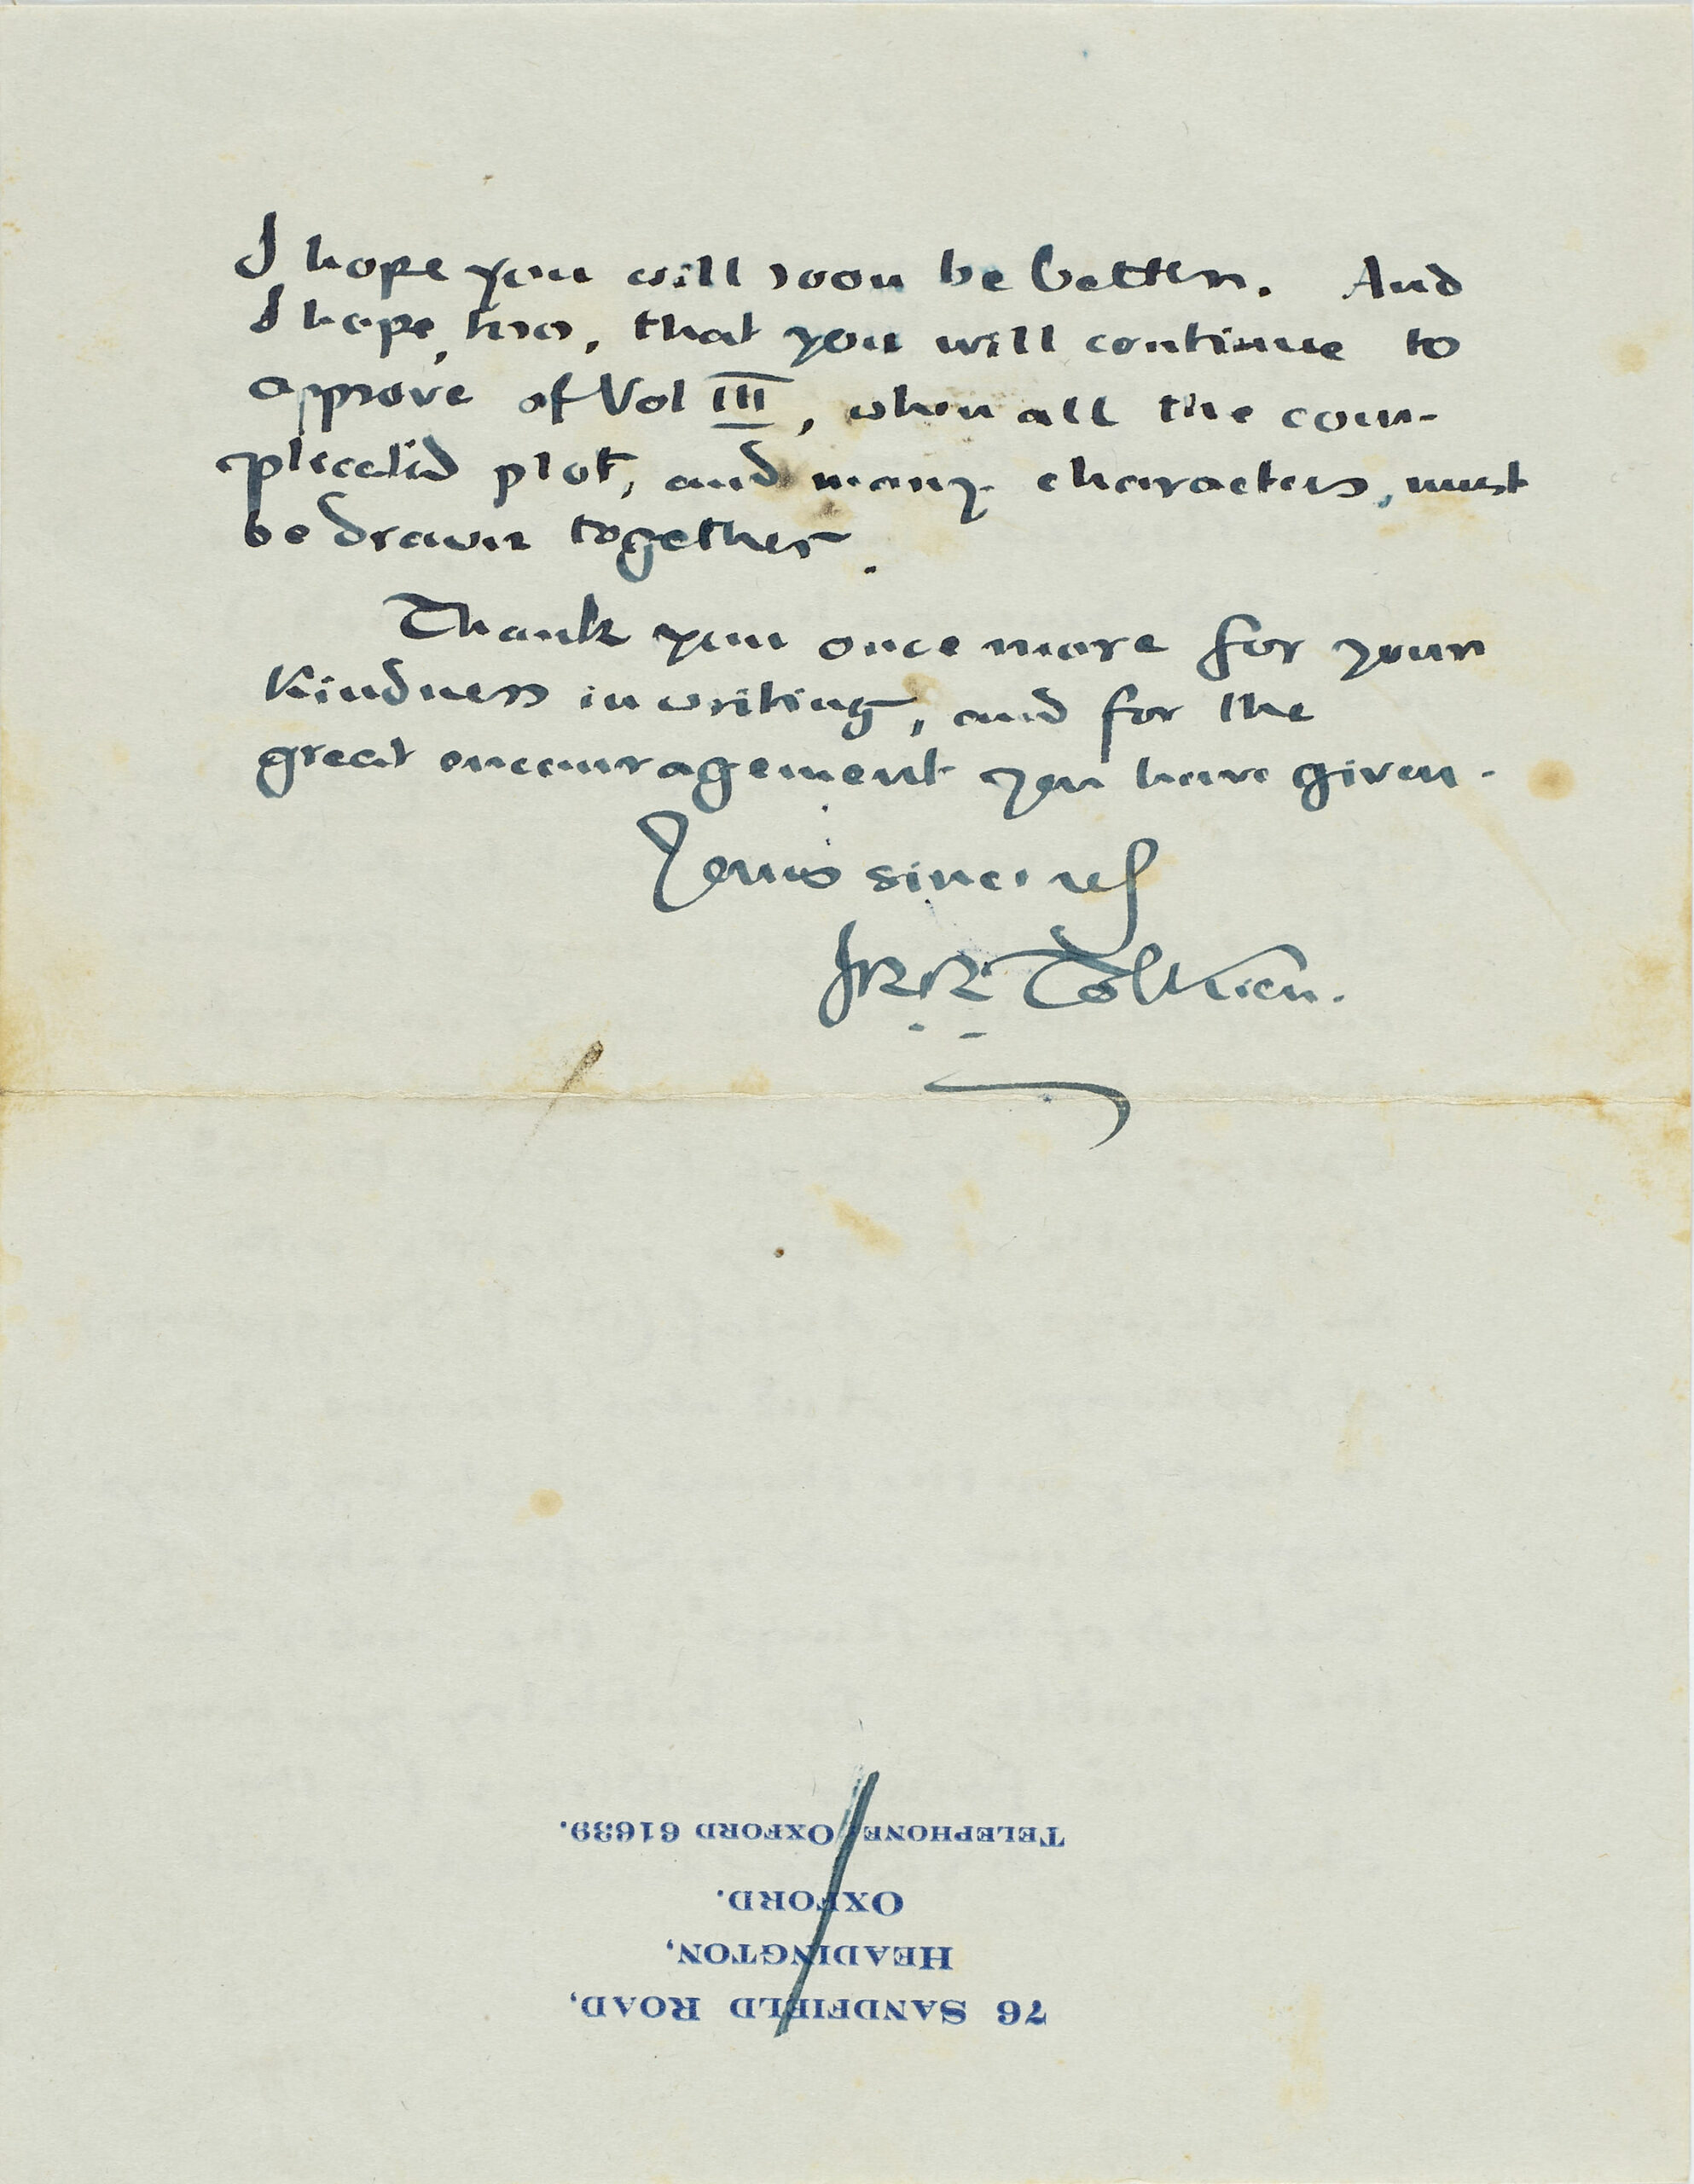 I hope you will soon be better. And
I hope, too, that you will continue to
approve of Vol III, when all the com-
plicated plot, and many characters, must
be drawn together.
Thank you once more for your
kindness in writing, and for the
great encouragement you have given.
Yours sincerely
JRR Tolkien.
76 SANDFIELD ROAD,
HEADINGTON,
OXFORD.
TELEPHONE OXFORD 61639.